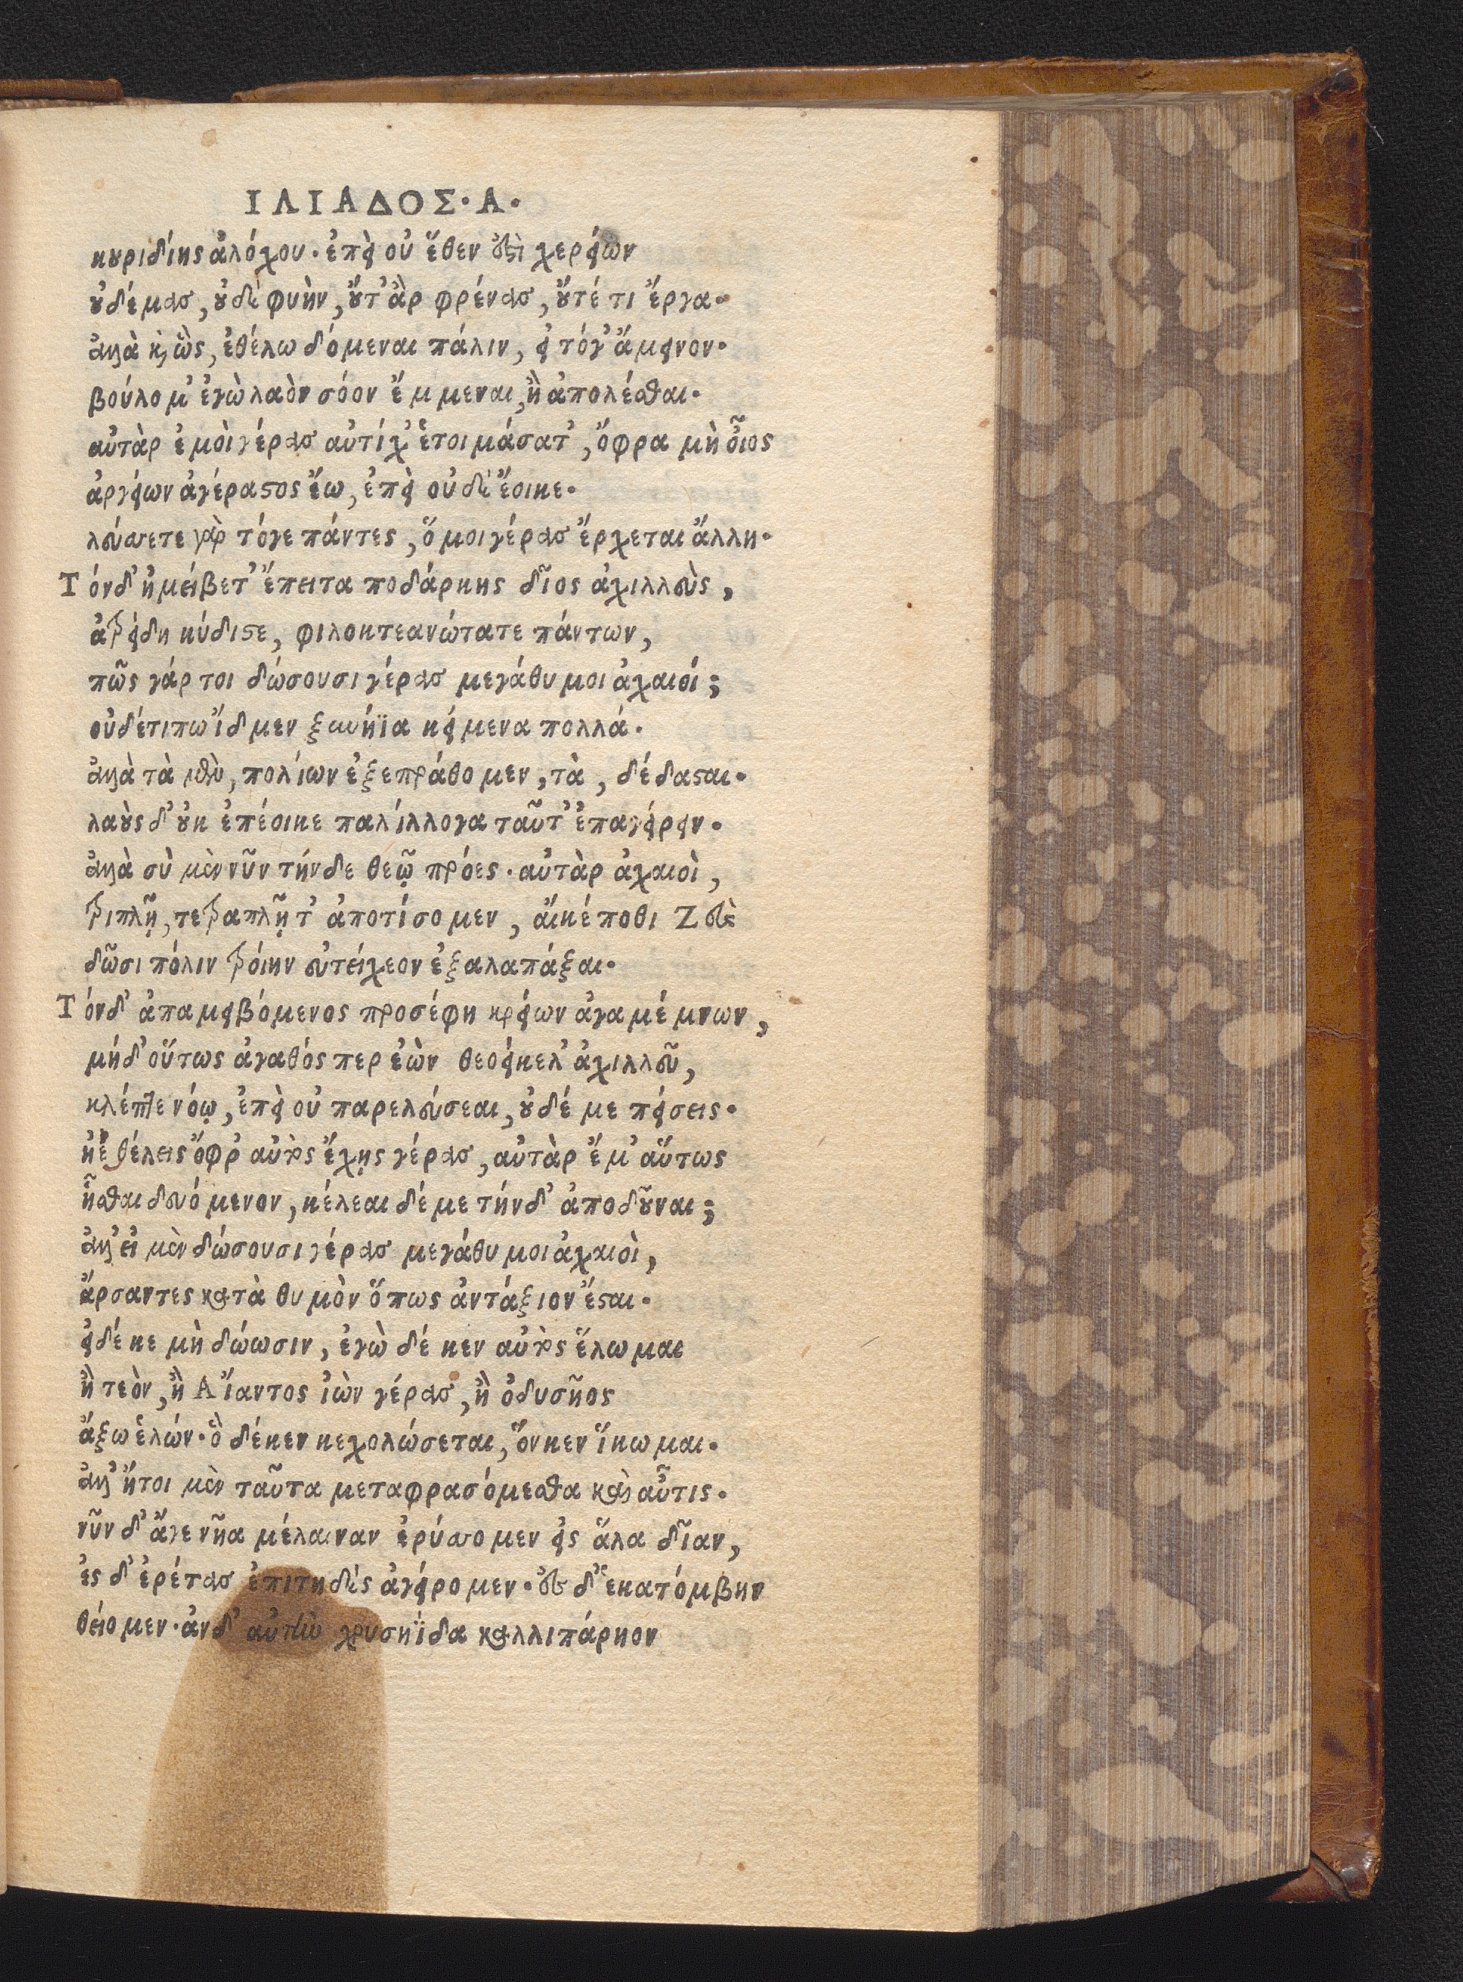 ΙΛΙΑΔΟΣ·Α·
κουριδίης ἀλόχου· ἐπεὶ οὔ ἕθεν ἐστὶ χερείων
οὐδέμας, οὐδὲ φυὴν, οὔτ' ἂρ φρένας, οὔτέ τι ἔργα·
ἀλλὰ καὶ ὣς, ἐθέλω δόμεναι πάλιν, εἰ τόγ' ἄμεινον·
βούλομ' ἐγὼ λαὸν σόον ἔμμεναι, ἢ ἀπολέσθαι·
αὐτὰρ ἐμοὶ γέρας αὐτίχ' ἑτοιμάσατ', ὄφρα μὴ οἶος
ἀργείων ἀγέραστος ἔω, ἐπεὶ οὐδὲ ἔοικε·
λεύσσετε γὰρ τόγε πάντες, ὅ μοι γέρας ἔρχεται ἄλλη·
Τόνδ' ἠμείβετ' ἔπειτα ποδάρκης δῖος ἀχιλλεὺς,
ἀτρείδη κύδιστε, φιλοκτεανώτατε πάντων,
πῶς γάρ τοι δώσουσι γέρας μεγάθυμοι ἀχαιοί;
οὐδέτιπω ἴδμεν ξυνήϊα κείμενα πολλά·
ἀλλὰ τὰ μὲν, πολίων ἐξεπράθομεν, τὰ, δέδασται·
λαοὺς δ' οὐκ ἐπέοικε παλίλλογα ταῦτ' ἐπαγείρειν·
ἀλλὰ σὺ μὲν νῦν τήνδε θεῷ πρόες· αὐτὰρ ἀχαιοὶ,
τριπλῇ, τετραπλῇ τ' ἀποτίσομεν, αἴκέ ποθι Ζεὺς
δῶσι πόλιν τροίην εὐτείχεον ἐξαλαπάξαι·
Τόνδ' ἀπαμειβόμενος προσέφη κρείων ἀγαμέμνων,
μήδ' οὕτως ἀγαθός περ ἐὼν θεοείκελ' ἀχιλλεῦ,
κλέπτε νόῳ, ἐπεὶ οὐ παρελεύσεαι, οὐδέ με πείσεις·
ἠὲ θέλεις ὄφρ' αὐτὸς ἔχῃς γέρας, αὐτὰρ ἔμ' αὔτως
ἧσθαι δευόμενον, κέλεαι δέ με τήνδ' ἀποδοῦναι;
ἀλλ' εἰ μὲν δώσουσι γέρας μεγάθυμοι ἀχαιοὶ,
ἄρσαντες κατὰ θυμὸν ὅπως ἀντάξιον ἔσται·
εἰ δέ κε μὴ δώωσιν, ἐγὼ δέ κεν αὐτὸς ἕλωμαι
ἢ τεὸν, ἢ Αἴαντος ἰὼν γέρας, ἢ ὀδυσῆος
ἄξω ἑλών· ὃ δέκεν κεχολώσεται, ὅν κεν ἵκωμαι·
ἀλλ' ἤτοι μὲν ταῦτα μεταφρασόμεσθα καὶ αὖτις·
νῦν δ' ἄγε νῆα μέλαιναν ἐρύσσομεν εἰς ἅλα δῖαν,
ἐς δ' ἐρέτας ἐπιτηδὲς ἀγείρομεν· ἐς δ' ἑκατόμβην
θείομεν· ἀνδ' αὐτὴν χρυσηΐδα καλλιπάρηον